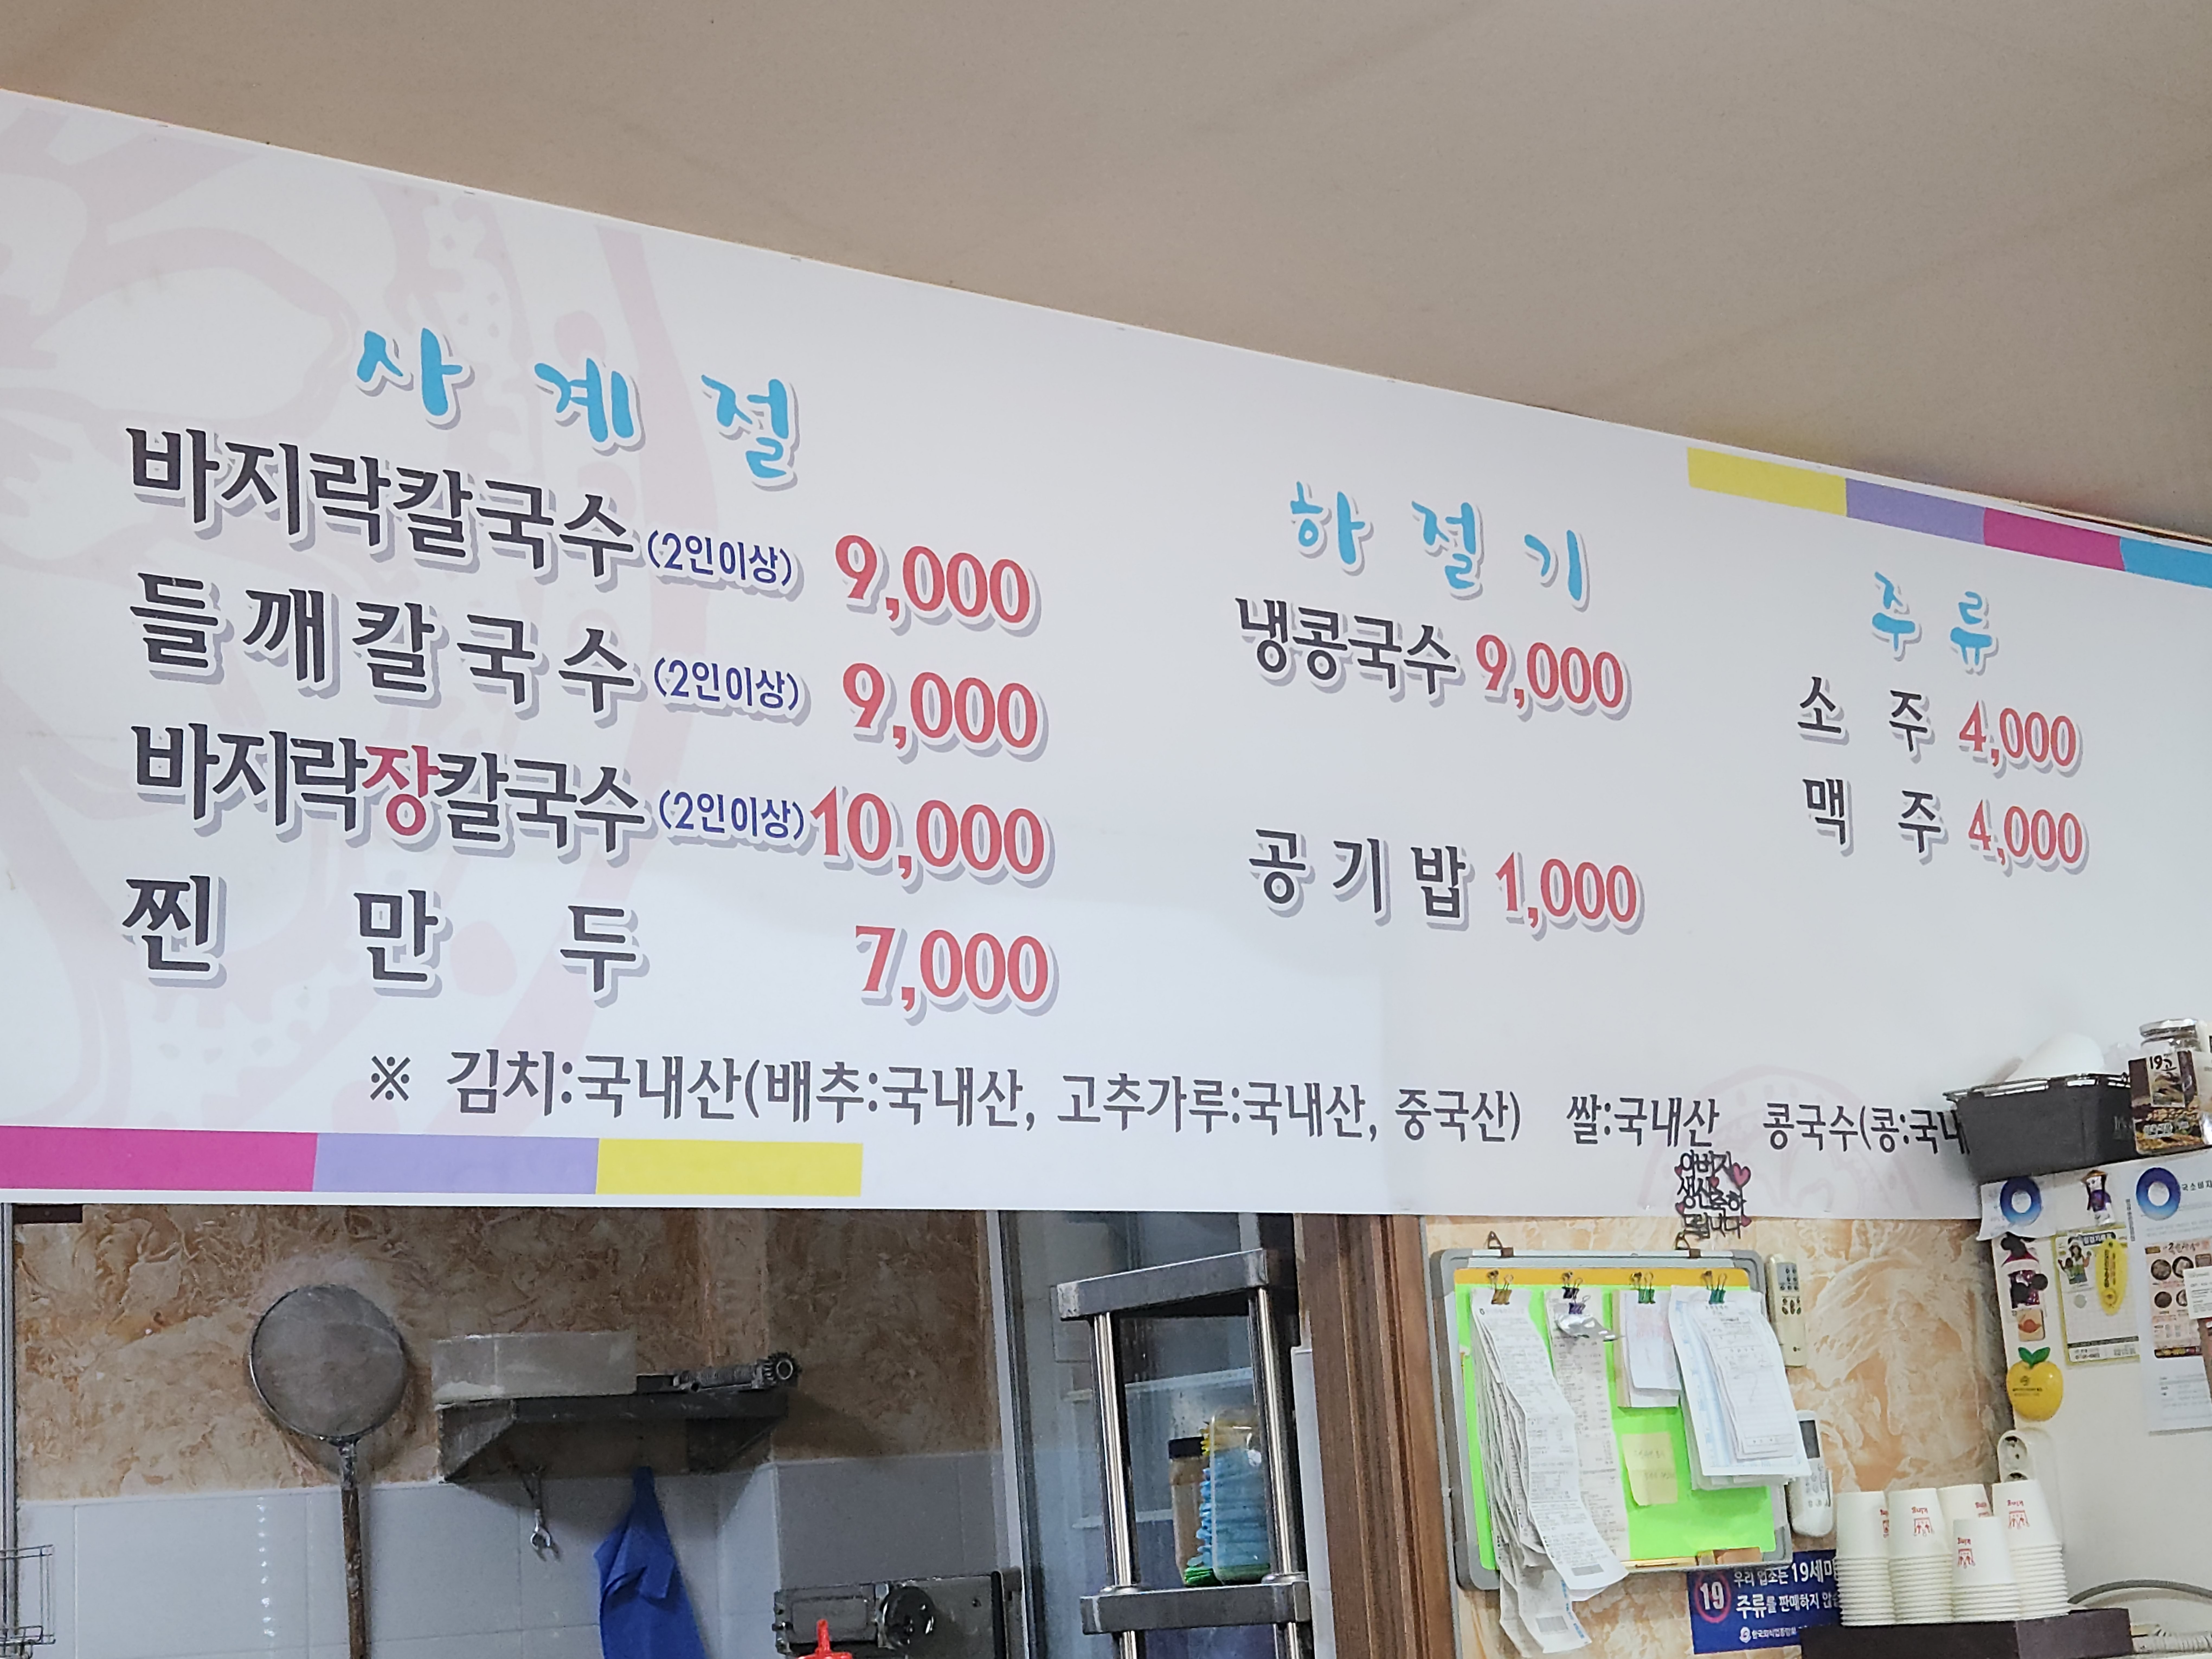 사계절
바지락칼국수 (2인이상) 9,000
들깨칼국수 (2인이상) 9,000
바지락장칼국수 (2인이상) 10,000
찐만두 7,000
하절기
냉콩국수 9,000
공기밥 1,000
주류
소주 4,000
맥주 4,000
※ 김치:국내산(배추:국내산, 고추가루:국내산, 중국산) 쌀:국내산 콩국수(콩:국내
아버지
생신축하
드립니다
19 우리 업소는 19세미
주류를 판매하지 않
한국외식업중앙회